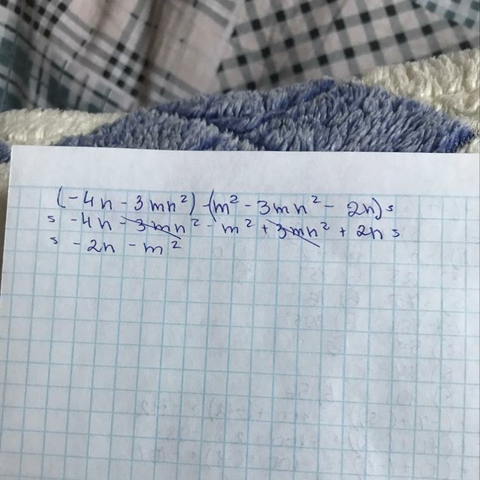 (-4n - 3mn²) - (m² - 3mn² - 2n) =
= -4n - 3mn² - m² + 3mn² + 2n =
= -2n - m²